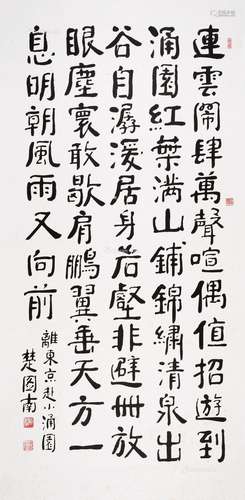 連雲鬧肆萬聲喧偶值招遊到
涌園紅葉滿山鋪錦繡清泉出
谷自潺湲居身岩壑非避世放
眼塵寰敢歇肩鵬翼垂天方一
息明朝風雨又向前
離東京赴小涌園
楚圖南